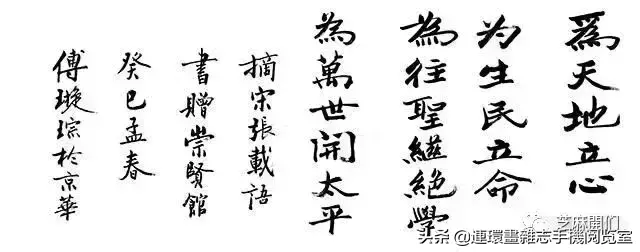 爲天地立心
为生民立命
為往聖繼絶學
為萬世開太平
摘宋張載語
書贈崇賢館
癸巳孟春
傅璇琮於京華
芝麻開们
头条 @連環畫雜志手機阅览室